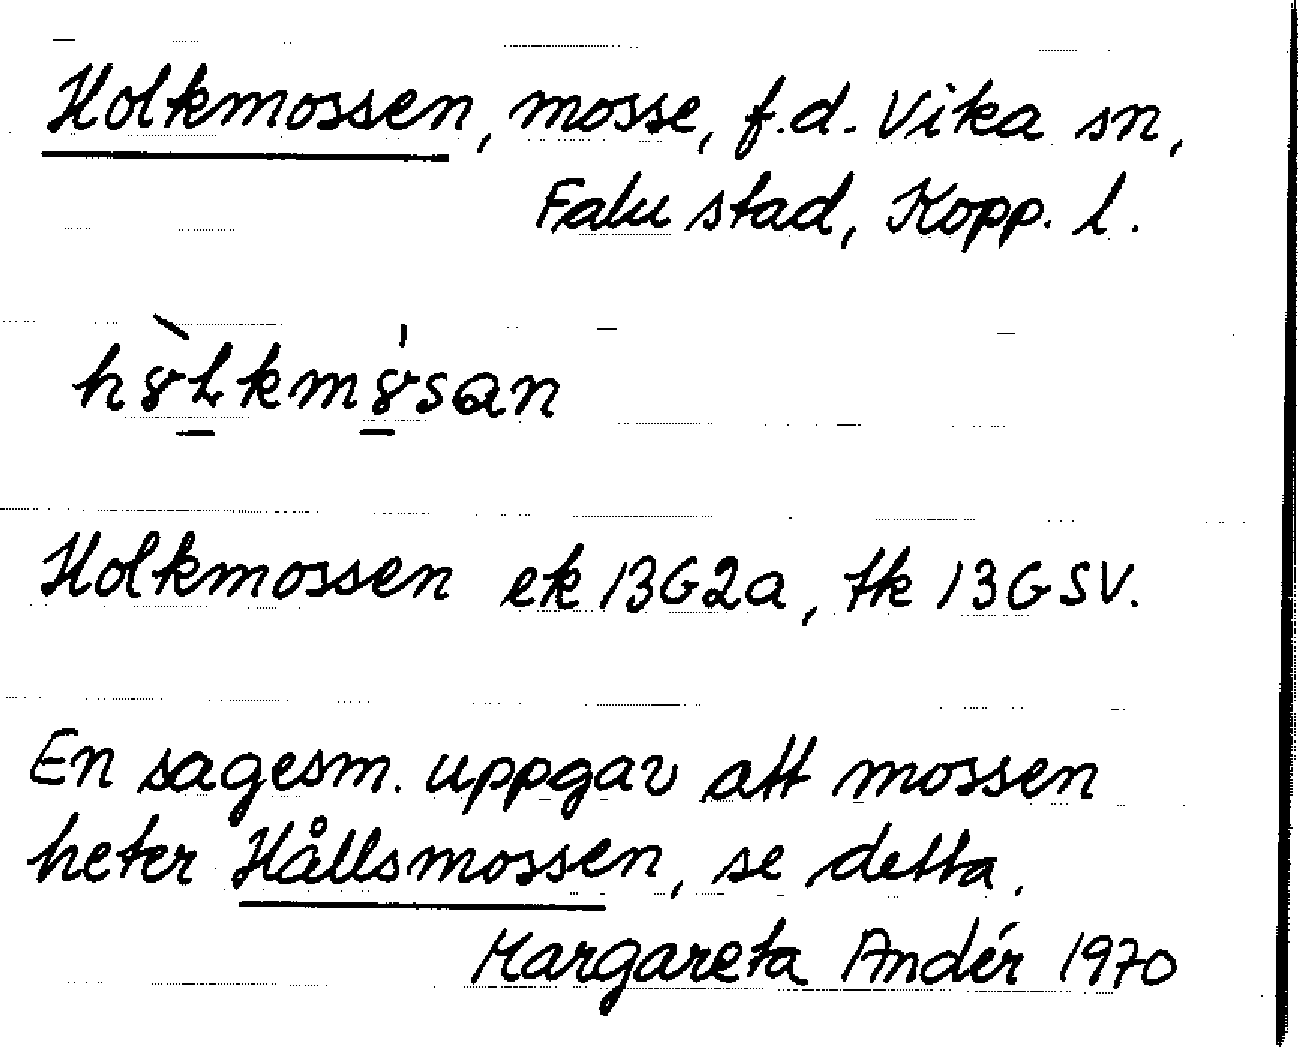 Holkmossen, mosse, f.d. Vika sn,
Falu stad, Kopp. l.
Holkmossen ek 13G2a, tk 13GSV.
En sagesm. uppgav att mossen
heter Hållsmossen, se detta.
Margareta Andér 1970